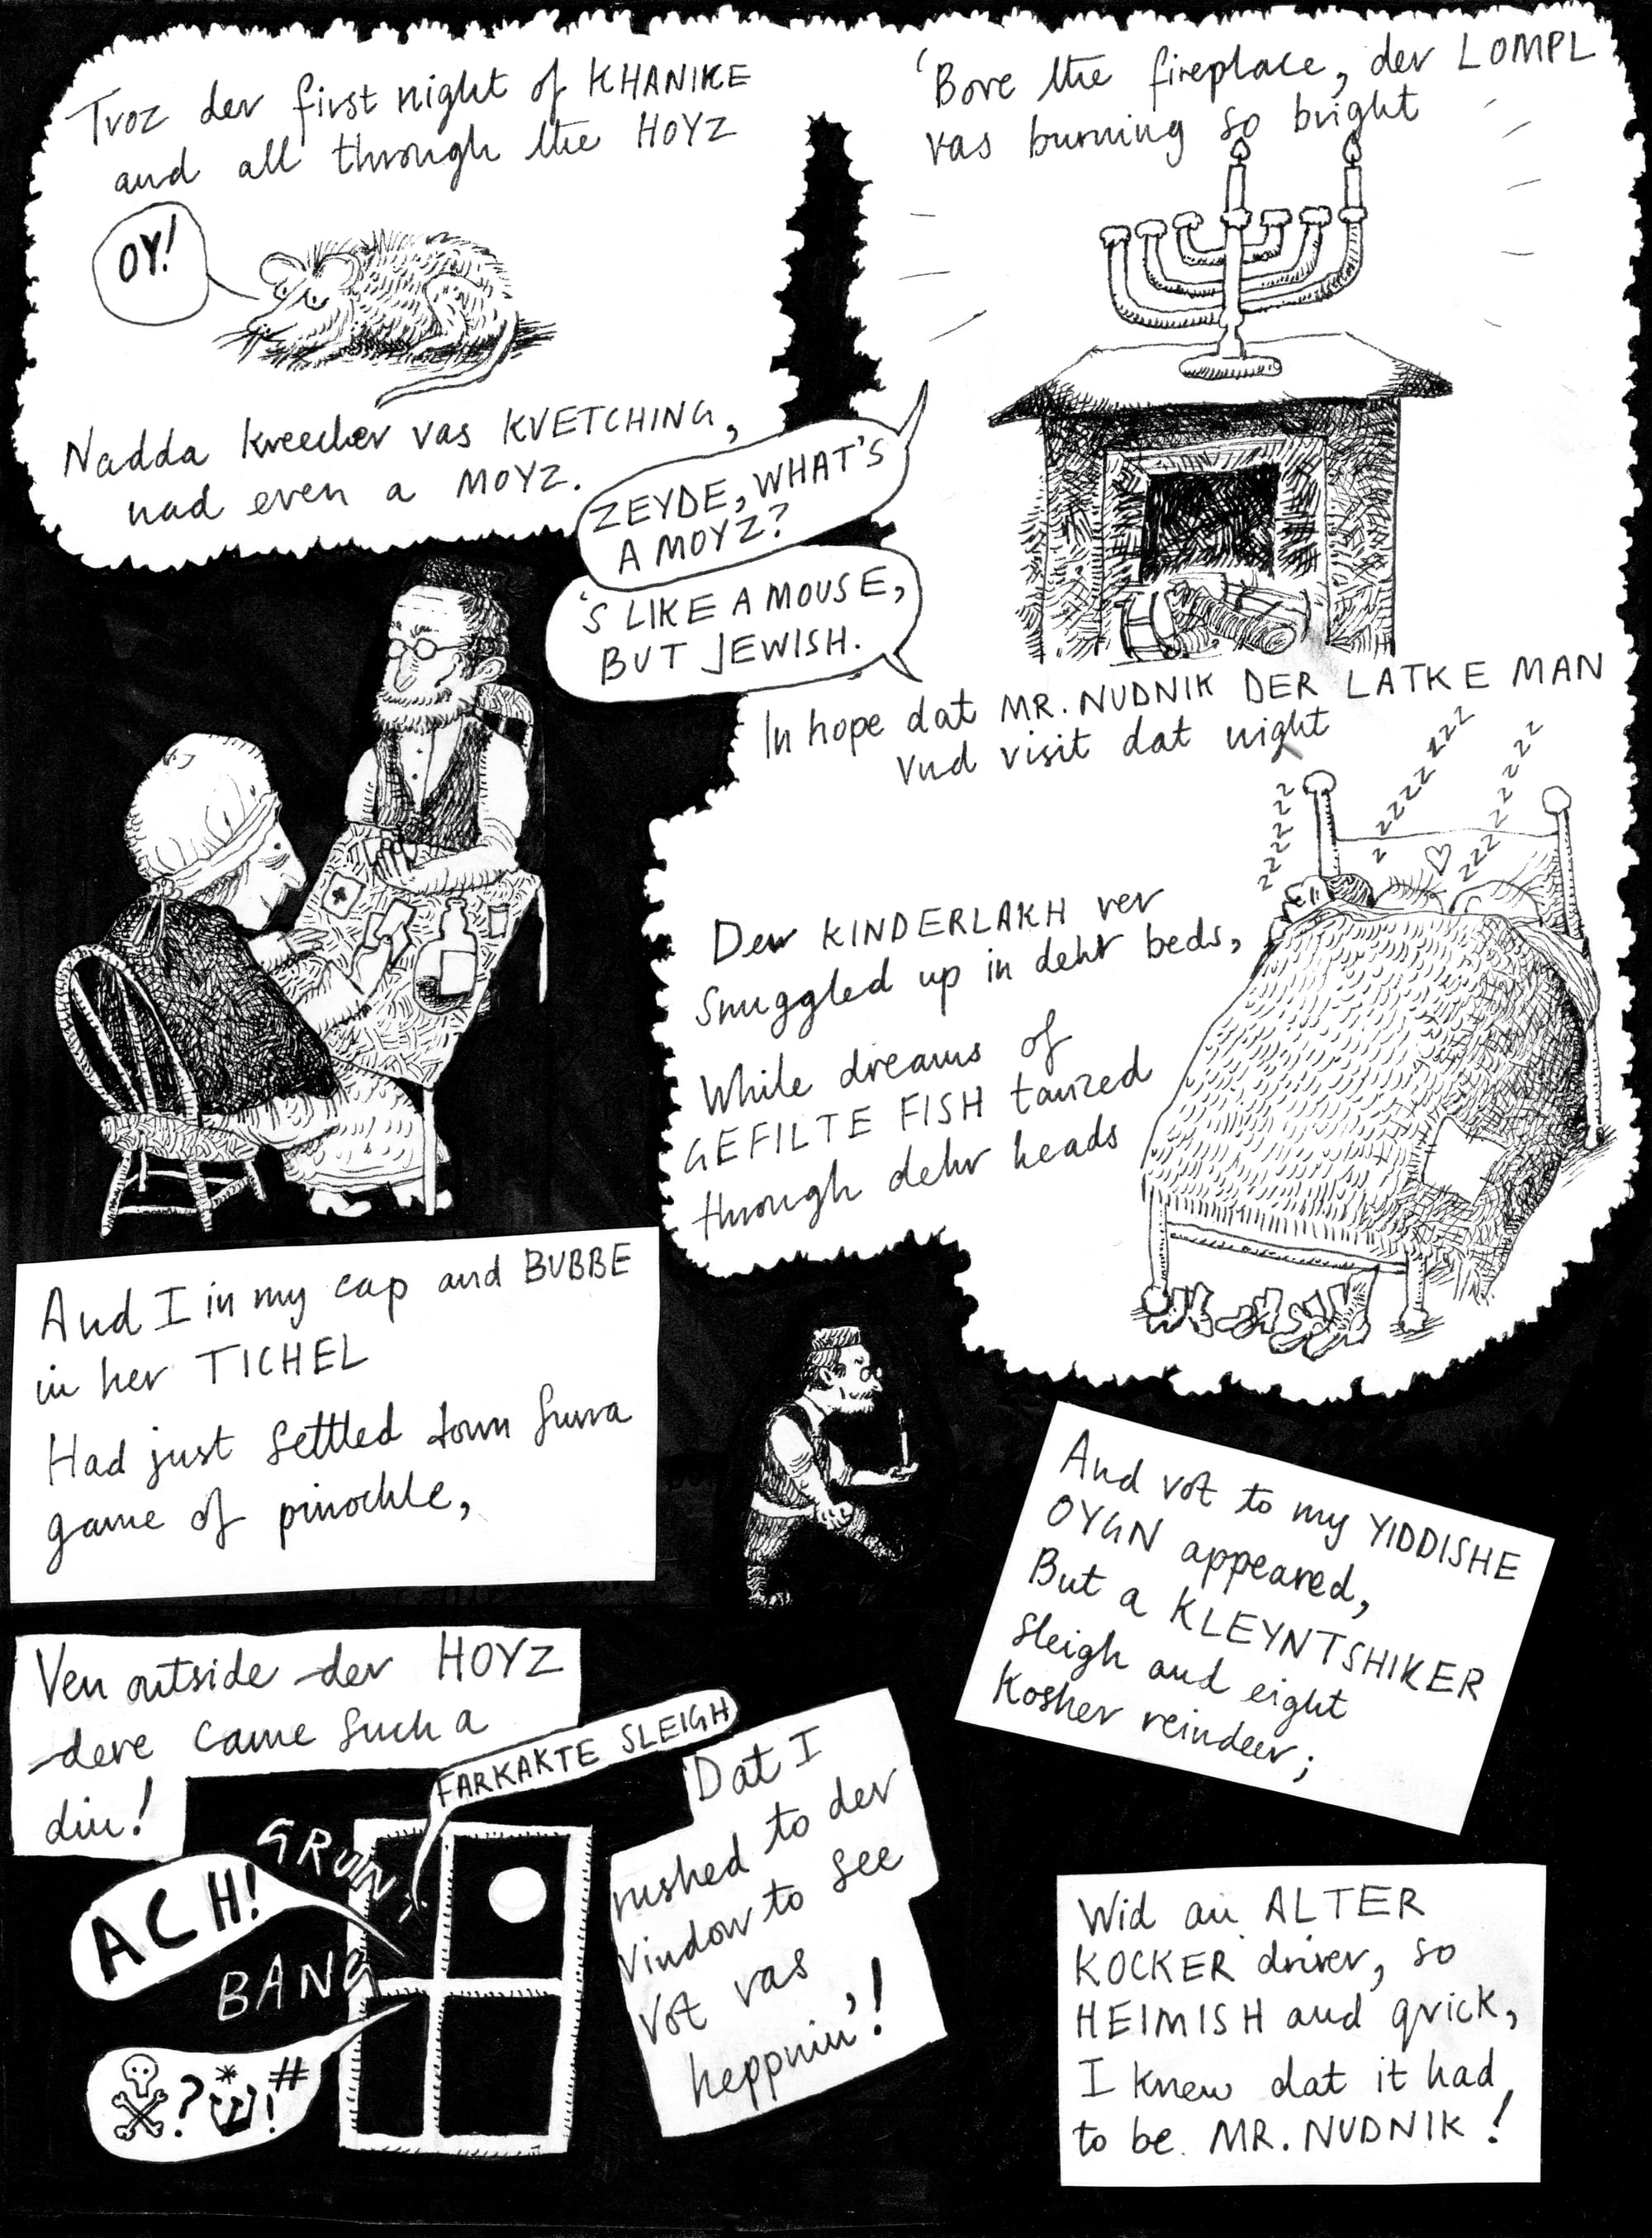 Troz der first night of KHANIKE
and all through the HOYZ
OY!
Nadda kreecher vas KVETCHING,
nad even a MOYZ.
'Bove the fireplace, der LOMPL
vas burning so bright
ZEYDE, WHAT'S
A MOYZ?
'S LIKE A MOUSE,
BUT JEWISH.
In hope dat MR. NUDNIK DER LATKE MAN
vud visit dat night
zzzzz
zzzzzzzz
zzzzzzz
Der KINDERLAKH ver
snuggled up in dehr beds,
While dreams of
GEFILTE FISH tanzed
through dehr heads
And I in my cap and BUBBE
in her TICHEL
Had just settled down furra
game of pinochle,
Ven outside der HOYZ
dere came such a
din!
FARKAKTE SLEIGH
GRUNT
ACH!
BANG
?ש*!#
Dat I
rushed to der
vindow to see
vot vas
heppnin'!
And vot to my YIDDISHE
OYGN appeared,
But a KLEYNTSHIKER
sleigh and eight
kosher reindeer;
Wid an ALTER
KOCKER driver, so
HEIMISH and qvick,
I knew dat it had
to be MR. NUDNIK!